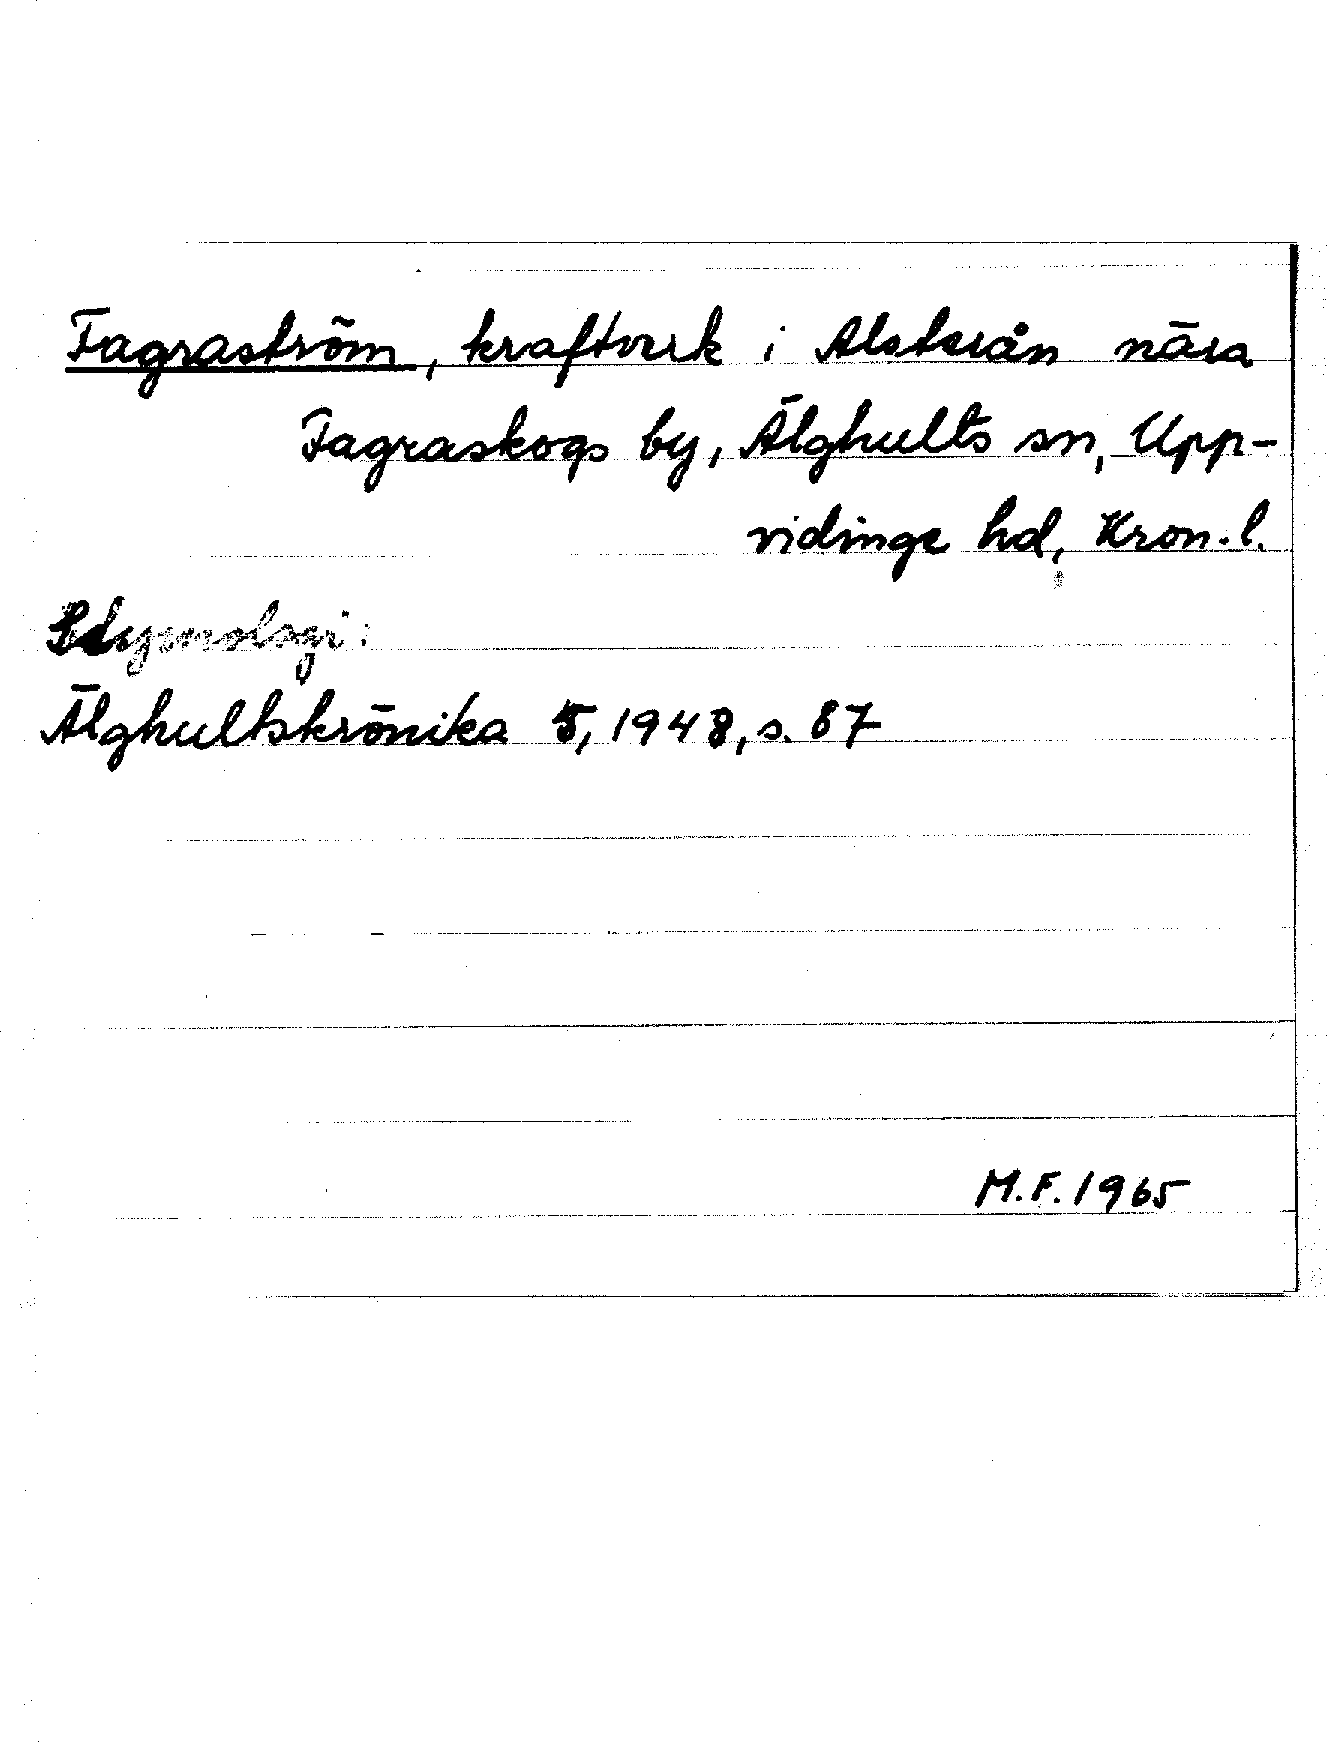 Fagraström, kraftverk i Alsterån nära
Fagraskogs by, Älghults sn, Upp-
vidinge hd, Kron. l.
Etymologi:
Älghultskrönika 5, 1948, s. 87
M.F. 1965